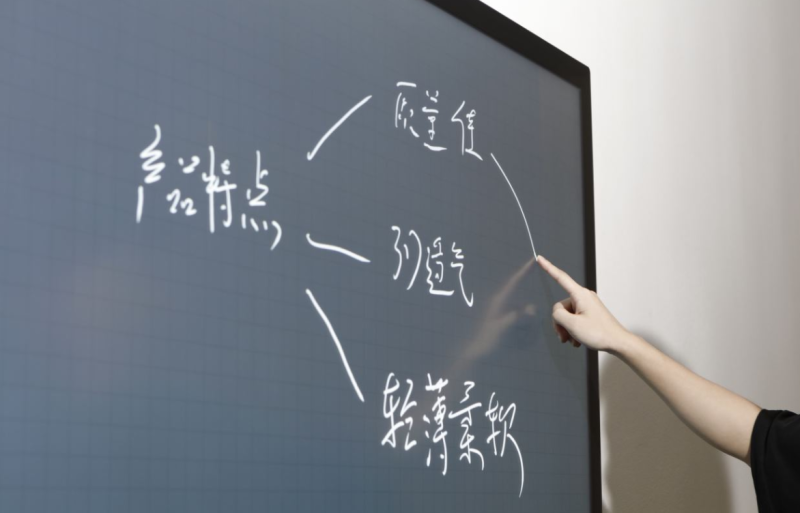 产品特点
质量佳
透气
轻薄柔软